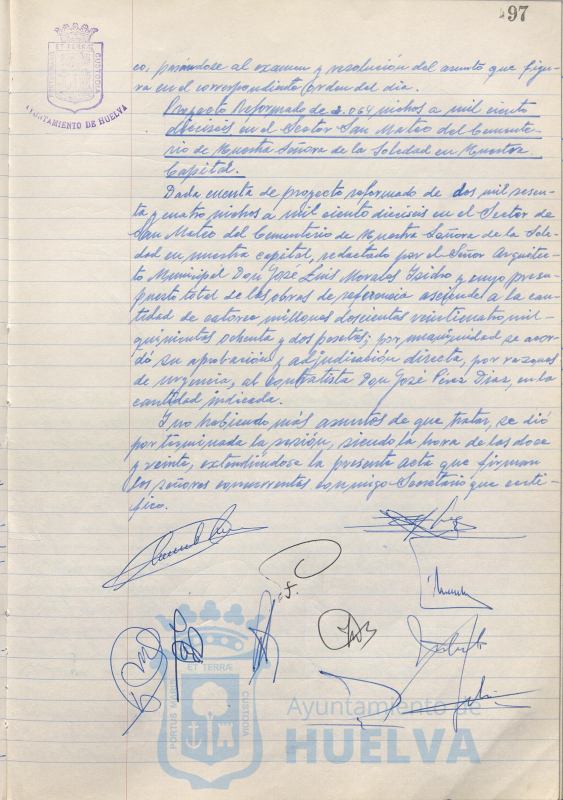 497
PORTUS MARIS ET TERRÆ CUSTODIA
AYUNTAMIENTO DE HUELVA
co, pasándose al examen y resolución del asunto que figu-
ra en el correspondiente Orden del día.
Proyecto Reformado de 2.064 nichos a mil ciento
dieciseis en el Sector San Mateo del Cemente-
rio de Nuestra Señora de la Soledad en Nuestra
Capital.
Dada cuenta de proyecto reformado de dos mil sesen-
ta y cuatro nichos a mil ciento dieciseis en el Sector de
San Mateo del Cementerio de Nuestra Señora de la Sole-
dad en nuestra capital, redactado por el Señor Arquitec-
to Municipal Don José Luis Morales Isidro y cuyo presu-
puesto total de las obras de referencia asciende a la can-
tidad de catorce millones doscientas veinticuatro mil
quinientas ochenta y dos pesetas; por unanimidad se acor-
dó su aprobación y adjudicación directa, por razones
de urgencia, al contratista Don José Pérez Díaz, en la
cantidad indicada.
Y no habiendo más asuntos de que tratar, se dió
por terminada la sesión, siendo la hora de las doce
y veinte, extendiéndose la presente acta que firman
los señores concurrentes conmigo Secretario que certi-
fico.
PORTUS MARIS ET TERRÆ CUSTODIA
Ayuntamiento de
HUELVA